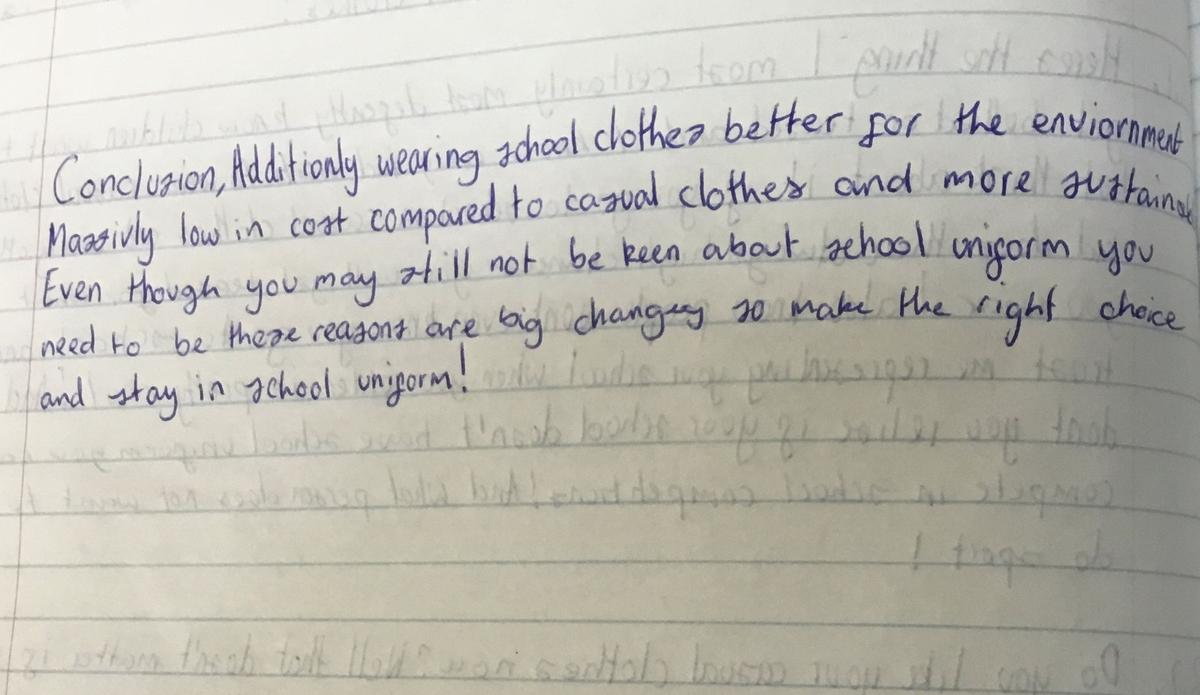 Conclusion, Additionly wearing school clothes better for the enviornment
Massivly low in cost compared to casual clothes and more sustaina
Even though you may still not be keen about school uniform you
need to be these reasons are big changes so make the right choice
and stay in school uniform!